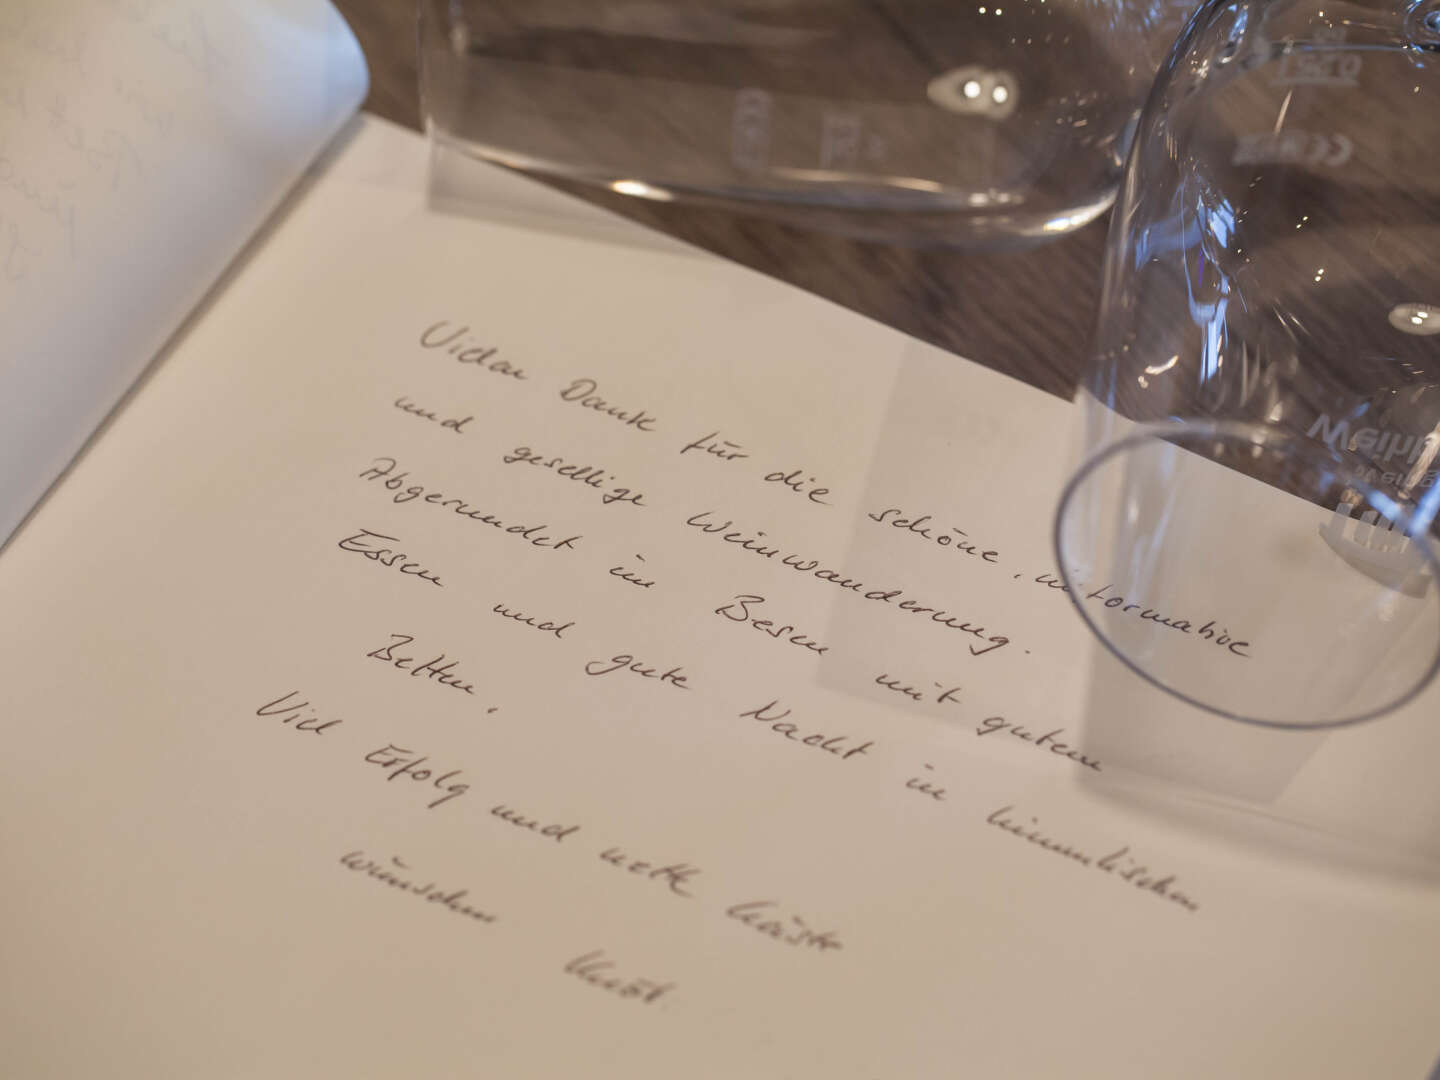 Vielen Dank für die schöne, informative
und gesellige Weinwanderung.
Abgerundet im Besen mit gutem
Essen und gute Nacht in himmlischen
Betten.
Viel Erfolg und nette Gäste
wünschen
0,25 l
Weih